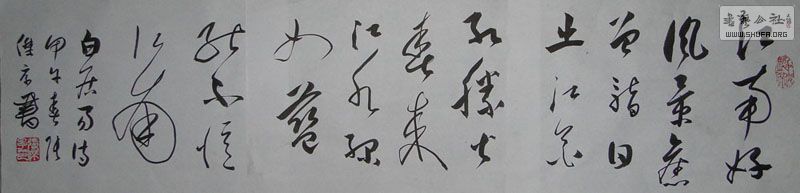 江南好
風景舊
曾諳日
出江花
紅勝火
春來
江水綠
如藍
能不憶
江南
白居易詩
甲午春
書
書藝公社
WWW.SHUFA.ORG